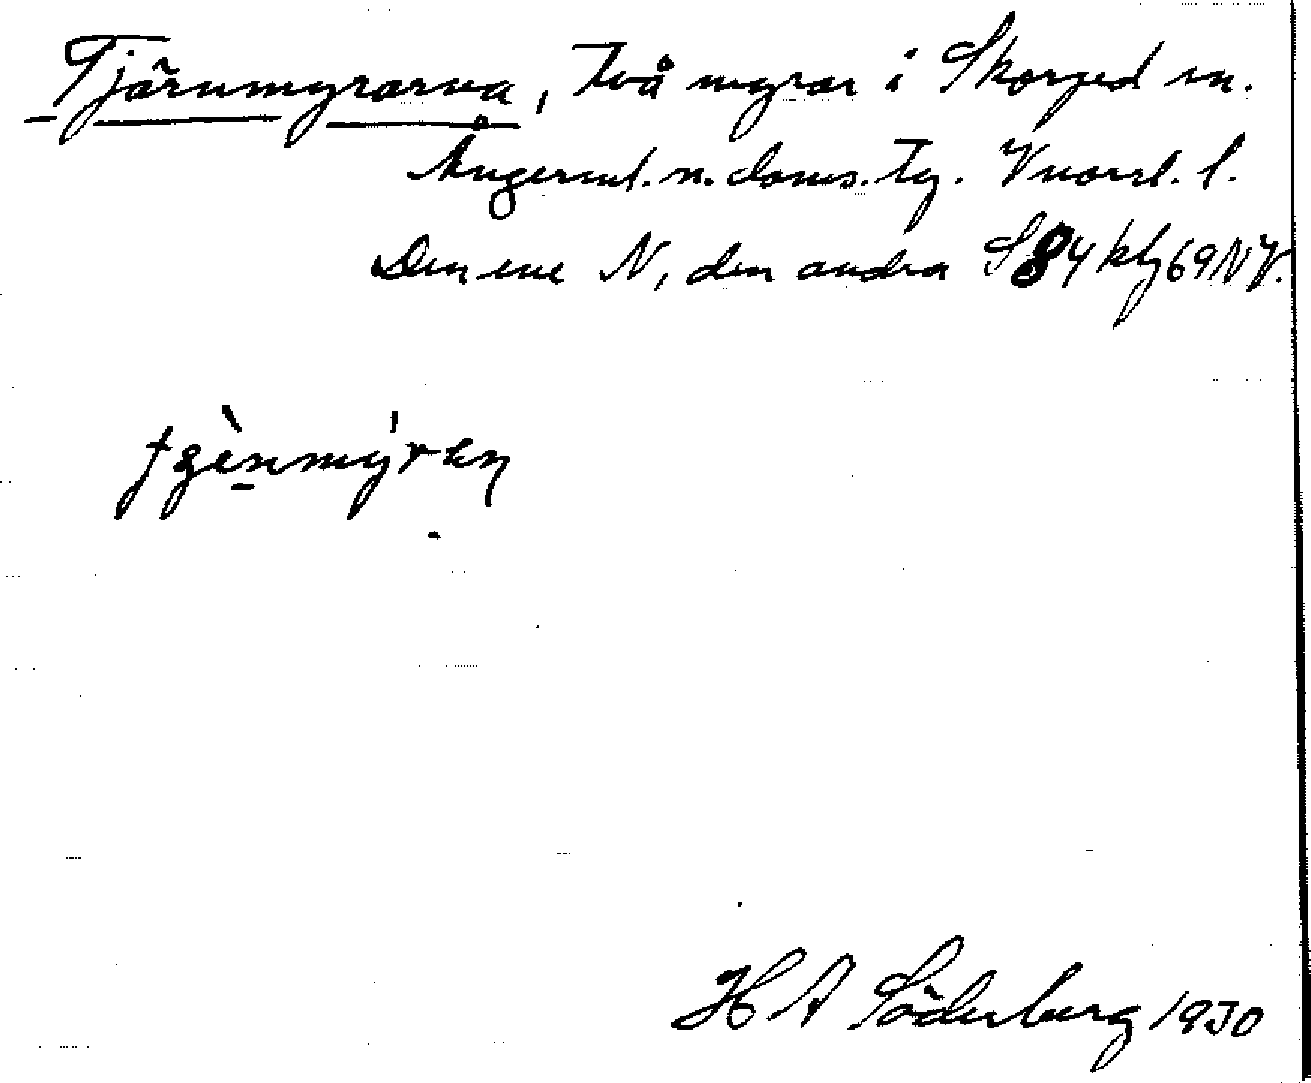 Tjärnmyrarna, Två myrar i Skorped sn.
Ångerml. n. doms. tg. Vnorrl. l.
Den ene N, den andra S 84 kbl 69 NV.
H A Söderberg 1930